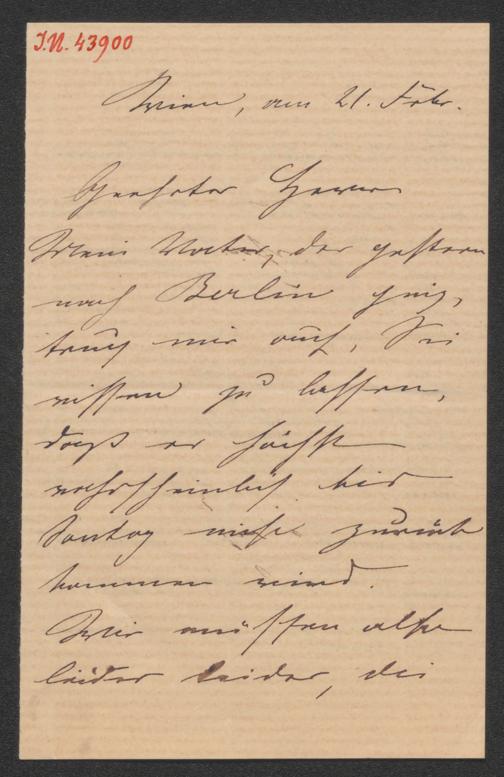 I.N. 43900
Wien, am 21. Febr.
Geehrter Herr
Mein Vater, der gestern
nach Berlin ging,
trug mir auf, Sie
wissen zu lassen,
daß er höchst
wahrscheinlich bis
Sontag nicht zurück
kommen wird.
Wir müssen also
leider leider, die